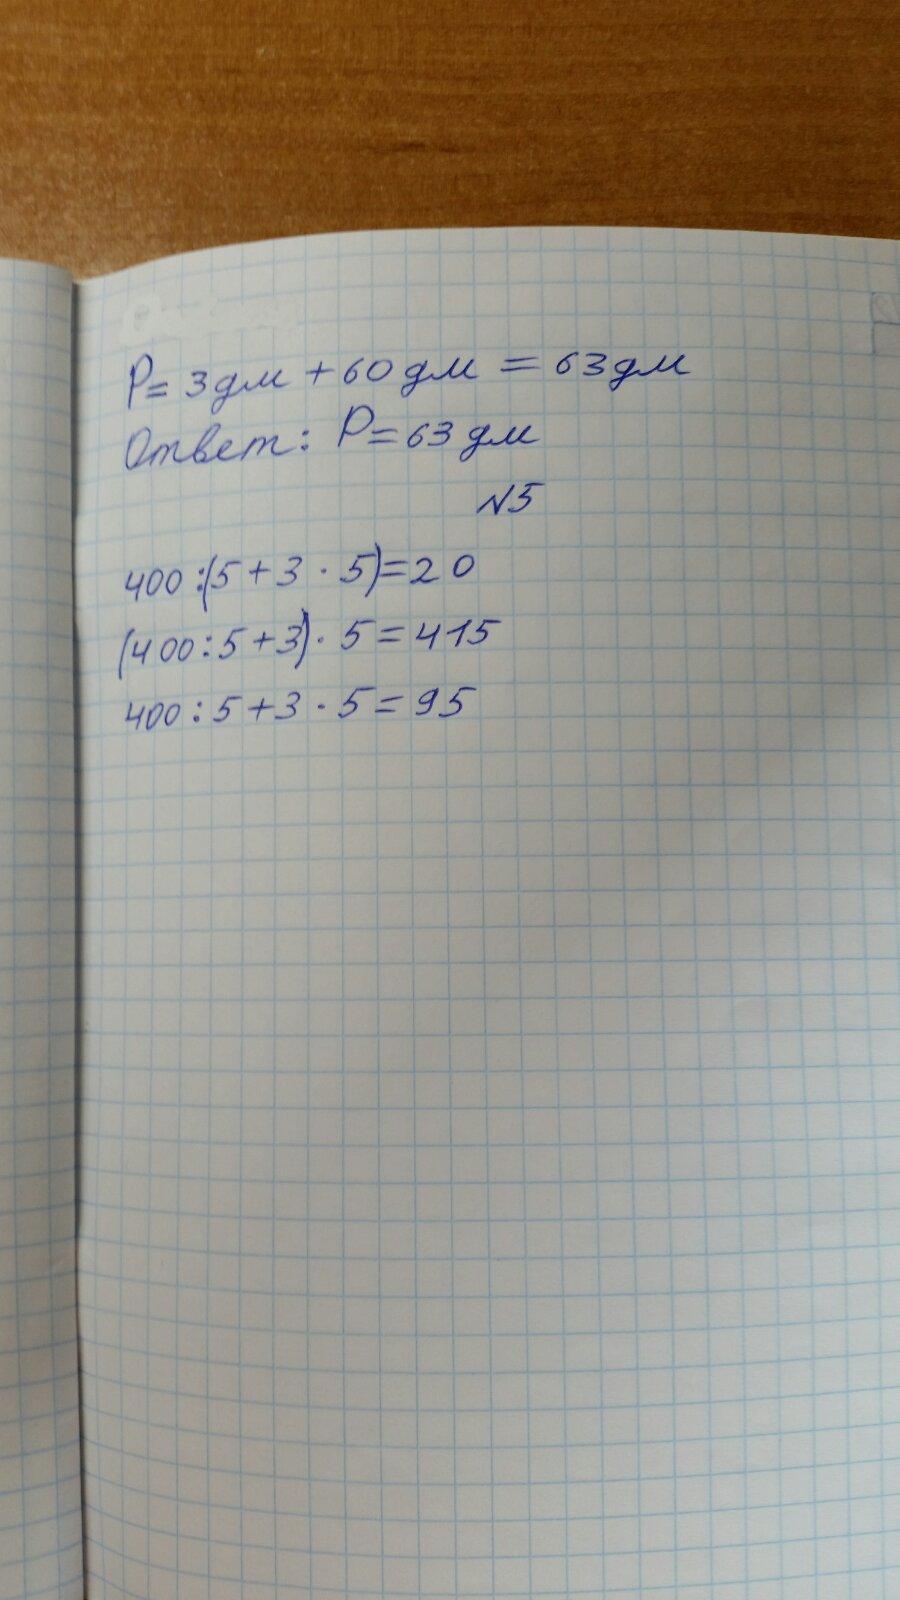 P = 3 дм + 60 дм = 63 дм
Ответ: P = 63 дм
№5
400 : (5 + 3 · 5) = 20
(400 : 5 + 3) · 5 = 415
400 : 5 + 3 · 5 = 95